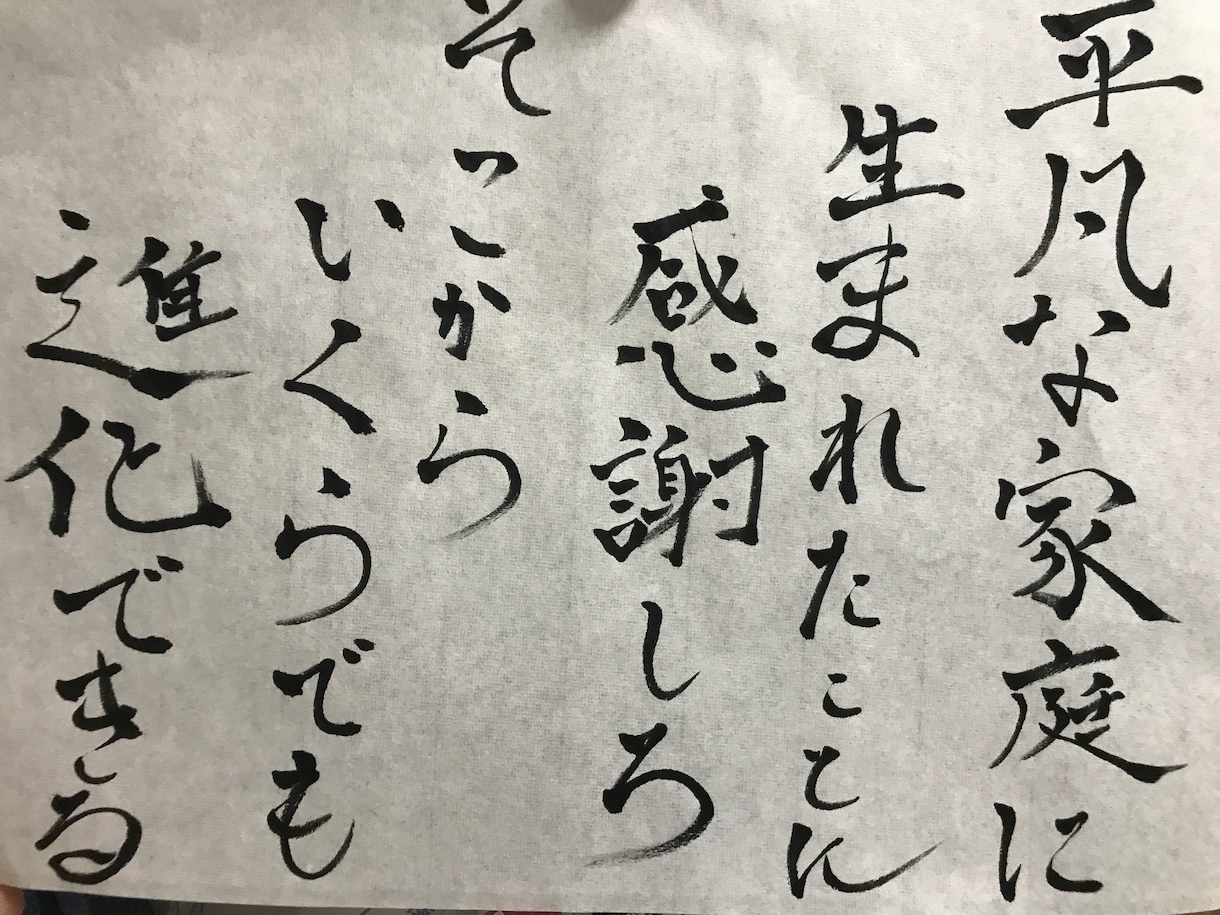 平凡な家庭に
生まれたことに
感謝しろ
そっから
いくらでも
進化できる